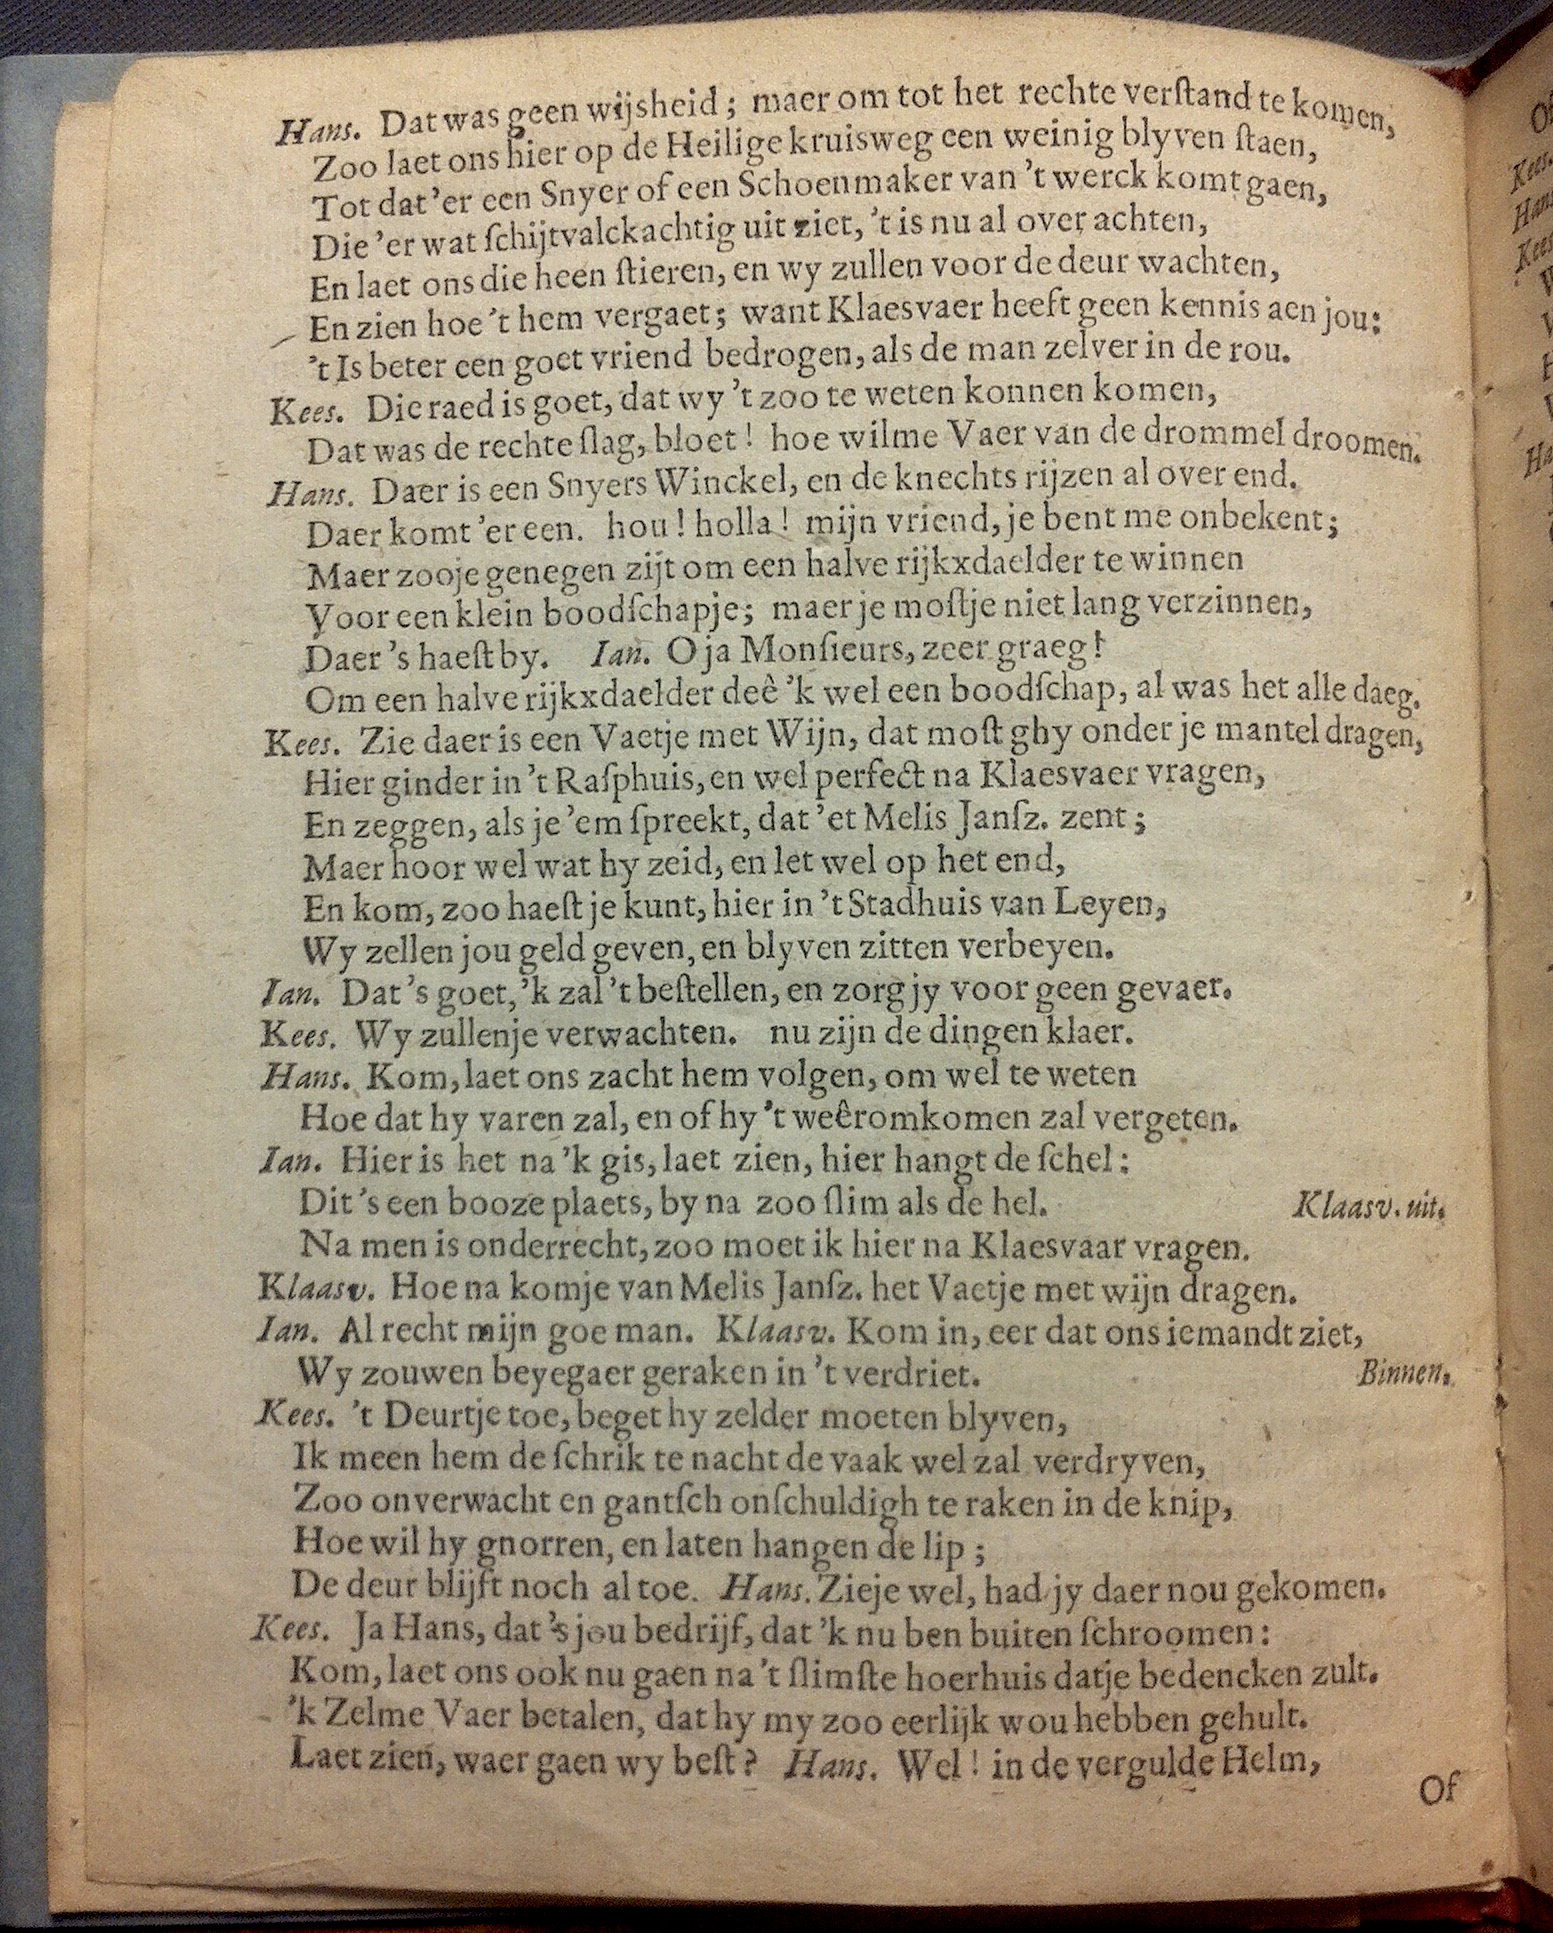 Hans. Dat was geen wijsheid; maer om tot het rechte verſtand te komen,
Zoo laet ons hier op de Heilige kruisweg een weinig blyven ſtaen,
Tot dat 'er een Snyer of een Schoenmaker van 't werck komt gaen,
Die 'er wat ſchijtvalckachtig uit ziet, 't is nu al over achten,
En laet ons die heen ſtieren, en wy zullen voor de deur wachten,
En zien hoe 't hem vergaet; want Klaesvaer heeft geen kennis aen jou:
't Is beter een goet vriend bedrogen, als de man zelver in de rou.
Kees. Die raed is goet, dat wy 't zoo te weten konnen komen,
Dat was de rechte ſlag, bloet! hoe wilme Vaer van de drommel droomen.
Hans. Daer is een Snyers Winckel, en de knechts rijzen al over end.
Daer komt 'er een. hou! holla! mijn vriend, je bent me onbekent;
Maer zooje genegen zijt om een halve rijkxdaelder te winnen
Voor een klein boodſchapje; maer je moſtje niet lang verzinnen,
Daer 's haeſt by. Ian. O ja Monſieurs, zeer graeg!
Om een halve rijkxdaelder deê 'k wel een boodſchap, al was het alle daeg.
Kees. Zie daer is een Vaetje met Wijn, dat moſt ghy onder je mantel dragen,
Hier ginder in 't Raſphuis, en wel perfect na Klaesvaer vragen,
En zeggen, als je 'em ſpreekt, dat 'et Melis Janſz. zent;
Maer hoor wel wat hy zeid, en let wel op het end,
En kom, zoo haeſt je kunt, hier in 't Stadhuis van Leyen,
Wy zellen jou geld geven, en blyven zitten verbeyen.
Ian. Dat 's goet, 'k zal 't beſtellen, en zorg jy voor geen gevaer.
Kees. Wy zullenje verwachten. nu zijn de dingen klaer.
Hans. Kom, laet ons zacht hem volgen, om wel te weten
Hoe dat hy varen zal, en of hy 't weêromkomen zal vergeten.
Ian. Hier is het na 'k gis, laet zien, hier hangt de ſchel:
Dit 's een booze plaets, by na zoo ſlim als de hel. Klaasv. uit.
Na men is onderrecht, zoo moet ik hier na Klaesvaar vragen.
Klaasv. Hoe na komje van Melis Janſz. het Vaetje met wijn dragen.
Ian. Al recht mijn goe man. Klaasv. Kom in, eer dat ons iemandt ziet,
Wy zouwen beyegaer geraken in 't verdriet. Binnen.
Kees. 't Deurtje toe, beget hy zelder moeten blyven,
Ik meen hem de ſchrik te nacht de vaak wel zal verdryven,
Zoo onverwacht en gantſch onſchuldigh te raken in de knip,
Hoe wil hy gnorren, en laten hangen de lip;
De deur blijft noch al toe. Hans. Zieje wel, had jy daer nou gekomen.
Kees. Ja Hans, dat 's jou bedrijf, dat 'k nu ben buiten ſchroomen:
Kom, laet ons ook nu gaen na 't ſlimſte hoerhuis datje bedencken zult.
'k Zelme Vaer betalen, dat hy my zoo eerlijk wou hebben gehult.
Laet zien, waer gaen wy beſt? Hans. Wel! in de vergulde Helm,
Of